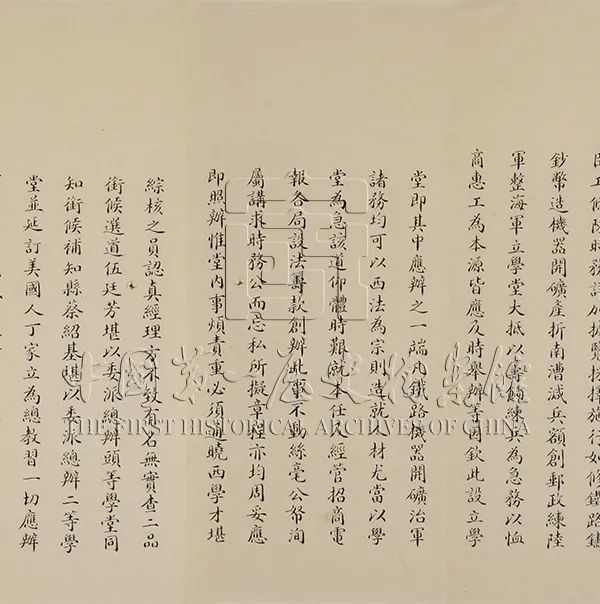 臣工條陳時務詳加披覽採擇施行如修鐵路鑄
鈔幣造機器開礦產折南漕減兵額創郵政練陸
軍整海軍立學堂大抵以籌餉練兵為急務以恤
商惠工為本源皆應及時舉辦等因欽此設立學
堂即其中應辦之一端凡鐵路機器開礦治軍
諸務均可以西法為宗則造就人材尤當以學
堂為急該道仰體時艱就本任及經管招商電
報各局設法籌款創辦此事不動絲毫公帑洵
屬講求時務公而忘私所擬章程亦均周妥應
即照辦惟堂內事煩責重必須通曉西學才堪
綜核之員認真經理方不致有名無實查二品
銜候選道伍廷芳堪以委派總辦頭等學堂同
知銜候補知縣蔡紹基堪以委派總辦二等學
堂並延訂美國人丁家立為總教習一切應辦
中國第一歷史檔案館
THE FIRST HISTORICAL ARCHIVES OF CHINA